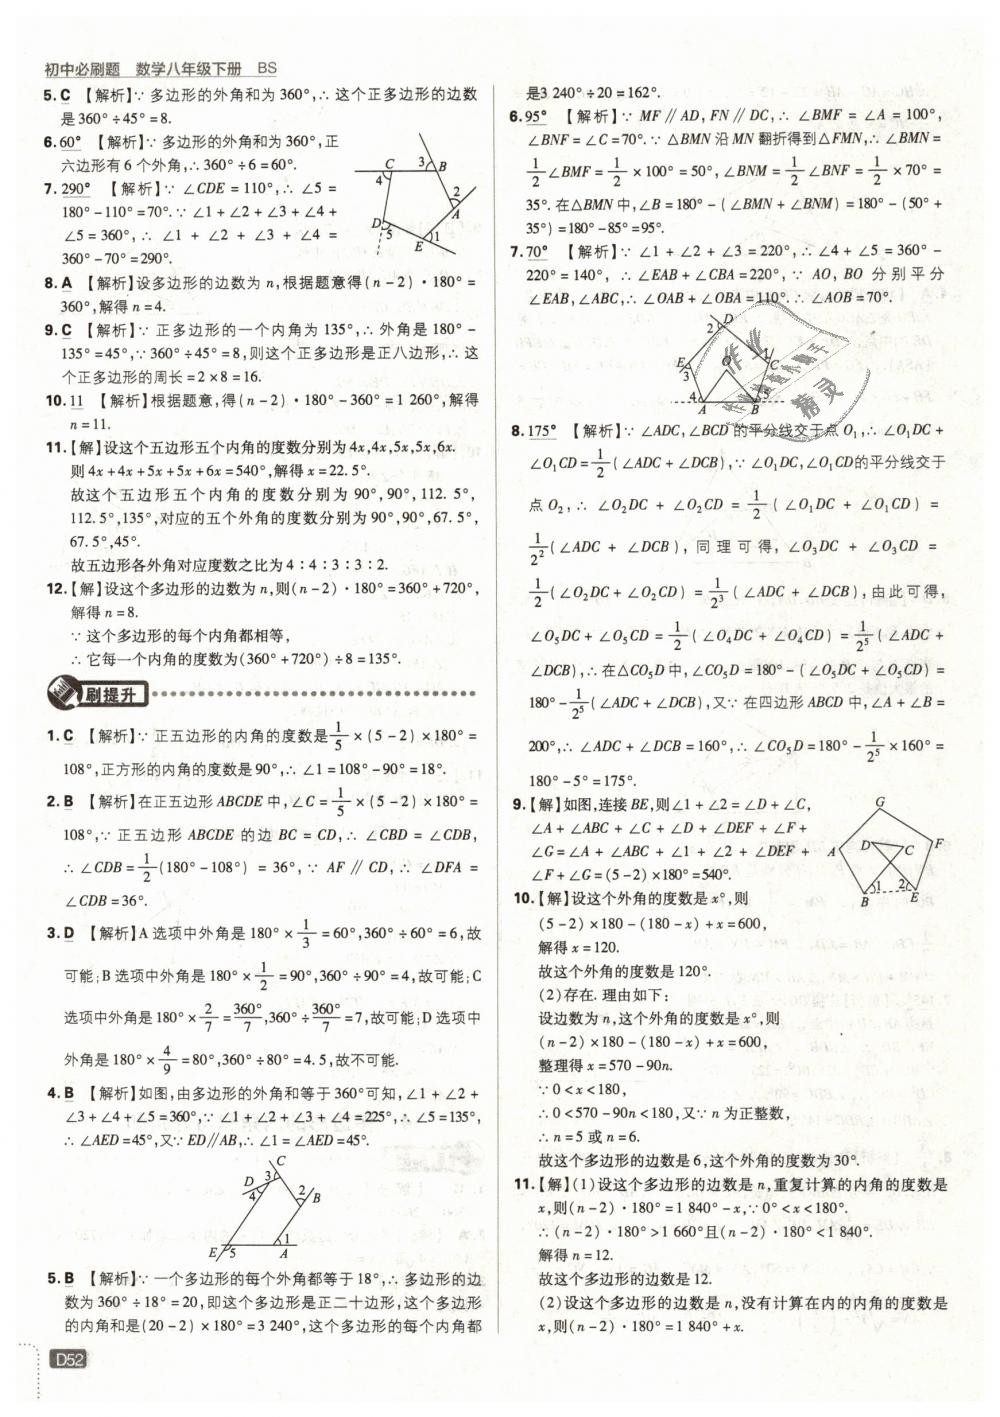 初中必刷题 数学八年级下册 BS
5. C 【解析】∵ 多边形的外角和为 360°,∴ 这个正多边形的边数
是 360° ÷ 45° = 8.
6. 60° 【解析】∵ 多边形的外角和为 360°,正
六边形有 6 个外角,∴ 360° ÷ 6 = 60°.
7. 290° 【解析】∵ ∠CDE = 110°,∴ ∠5 =
180° − 110° = 70°. ∵ ∠1 + ∠2 + ∠3 + ∠4 +
∠5 = 360°,∴ ∠1 + ∠2 + ∠3 + ∠4 =
360° − 70° = 290°.
C 3 B
4
2
A
D 5
1
E
8. A 【解析】设多边形的边数为 n,根据题意得(n − 2)·180° =
360°,解得 n = 4.
9. C 【解析】∵ 正多边形的一个内角为 135°,∴ 外角是 180° −
135° = 45°,∵ 360° ÷ 45° = 8,则这个正多边形是正八边形,∴ 这
个正多边形的周长 = 2 × 8 = 16.
10. 11 【解析】根据题意,得(n − 2)·180° − 360° = 1 260°,解得
n = 11.
11. 【解】设这个五边形五个内角的度数分别为 4x,4x,5x,5x,6x.
则 4x + 4x + 5x + 5x + 6x = 540°,解得 x = 22. 5°.
故这个五边形五个内角的度数分别为 90°,90°,112. 5°,
112. 5°,135°,对应的五个外角的度数分别为 90°,90°,67. 5°,
67. 5°,45°.
故五边形各外角对应度数之比为 4∶4∶3∶3∶2.
12. 【解】设这个多边形的边数为 n,则(n − 2)·180° = 360° + 720°,
解得 n = 8.
∵ 这个多边形的每个内角都相等,
∴ 它每一个内角的度数为(360° + 720°) ÷ 8 = 135°.
刷提升
1. C 【解析】∵ 正五边形的内角的度数是 1/5 × (5 − 2) × 180° =
108°,正方形的内角的度数是 90°,∴ ∠1 = 108° − 90° = 18°.
2. B 【解析】在正五边形 ABCDE 中,∠C = 1/5 × (5 − 2) × 180° =
108°,∵ 正五边形 ABCDE 的边 BC = CD,∴ ∠CBD = ∠CDB,
∴ ∠CDB = 1/2 (180° − 108°) = 36°,∵ AF∥CD,∴ ∠DFA =
∠CDB = 36°.
3. D 【解析】A 选项中外角是 180° × 1/3 = 60°,360° ÷ 60° = 6,故
可能;B 选项中外角是 180° × 1/2 = 90°,360° ÷ 90° = 4,故可能;C
选项中外角是 180° × 2/7 = 360°/7,360° ÷ 360°/7 = 7,故可能;D 选项中
外角是 180° × 4/9 = 80°,360° ÷ 80° = 4. 5,故不可能.
4. B 【解析】如图,由多边形的外角和等于 360° 可知,∠1 + ∠2 +
∠3 + ∠4 + ∠5 = 360°,∵ ∠1 + ∠2 + ∠3 + ∠4 = 225°,∴ ∠5 = 135°,
∴ ∠AED = 45°,又∵ ED∥AB,∴ ∠1 = ∠AED = 45°.
C
D 3
4 2 B
1
E 5 A
5. B 【解析】∵ 一个多边形的每个外角都等于 18°,∴ 多边形的边
数为 360° ÷ 18° = 20,即这个多边形是正二十边形,这个多边形
的内角和是(20 − 2) × 180° = 3 240°,这个多边形的每个内角都
D52
是 3 240° ÷ 20 = 162°.
6. 95° 【解析】∵ MF∥AD,FN∥DC,∴ ∠BMF = ∠A = 100°,
∠BNF = ∠C = 70°. ∵ △BMN 沿 MN 翻折得到△FMN,∴ ∠BMN =
1/2 ∠BMF = 1/2 × 100° = 50°,∠BNM = 1/2 ∠BNF = 1/2 × 70° =
35°. 在△BMN 中,∠B = 180° − (∠BMN + ∠BNM) = 180° − (50° +
35°) = 180° − 85° = 95°.
7. 70° 【解析】∵ ∠1 + ∠2 + ∠3 = 220°,∴ ∠4 + ∠5 = 360° −
220° = 140°,∴ ∠EAB + ∠CBA = 220°,∵ AO,BO 分别平分
∠EAB,∠ABC,∴ ∠OAB + ∠OBA = 110°. ∴ ∠AOB = 70°.
D
2
1
E O C
3
4 5
A B
作业
精灵
8. 175° 【解析】∵ ∠ADC,∠BCD 的平分线交于点 O₁,∴ ∠O₁DC +
∠O₁CD = 1/2 (∠ADC + ∠DCB),∵ ∠O₁DC,∠O₁CD 的平分线交于
点 O₂,∴ ∠O₂DC + ∠O₂CD = 1/2 (∠O₁DC + ∠O₁CD) =
1/2² (∠ADC + ∠DCB),同理可得,∠O₃DC + ∠O₃CD =
1/2 (∠O₂DC + ∠O₂CD) = 1/2³ (∠ADC + ∠DCB),由此可得,
∠O₅DC + ∠O₅CD = 1/2 (∠O₄DC + ∠O₄CD) = 1/2⁵ (∠ADC +
∠DCB),∴ 在△CO₅D 中,∠CO₅D = 180° − (∠O₅DC + ∠O₅CD) =
180° − 1/2⁵ (∠ADC + ∠DCB),又∵ 在四边形 ABCD 中,∠A + ∠B =
200°,∴ ∠ADC + ∠DCB = 160°,∴ ∠CO₅D = 180° − 1/2⁵ × 160° =
180° − 5° = 175°.
9. 【解】如图,连接 BE,则∠1 + ∠2 = ∠D + ∠C,
∠A + ∠ABC + ∠C + ∠D + ∠DEF + ∠F +
∠G = ∠A + ∠ABC + ∠1 + ∠2 + ∠DEF +
∠F + ∠G = (5 − 2) × 180° = 540°.
G
A D C F
1 2
B E
10. 【解】设这个外角的度数是 x°,则
(5 − 2) × 180 − (180 − x) + x = 600,
解得 x = 120.
故这个外角的度数是 120°.
(2)存在. 理由如下:
设边数为 n,这个外角的度数是 x°,则
(n − 2) × 180 − (180 − x) + x = 600,
整理得 x = 570 − 90n.
∵ 0 < x < 180,
∴ 0 < 570 − 90n < 180,又∵ n 为正整数,
∴ n = 5 或 n = 6.
故这个多边形的边数是 6,这个外角的度数为 30°.
11. 【解】(1)设这个多边形的边数是 n,重复计算的内角的度数是
x,则(n − 2)·180° = 1 840° − x,∵ 0° < x < 180°.
∴ (n − 2)·180° > 1 660°且(n − 2)·180° < 1 840°.
解得 n = 12.
故这个多边形的边数是 12.
(2)设这个多边形的边数是 n,没有计算在内的内角的度数是
x,则(n − 2)·180° = 1 840° + x.